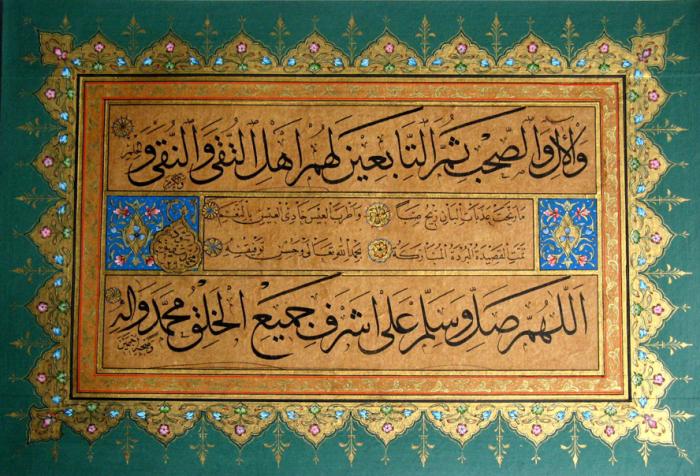 وَالْاٰلِ وَالصَّحْبِ ثُمَّ التَّابِعِينَ لَهُمْ اَهْلِ التُّقٰى وَالنُّقٰى وَالْحِلْمِ وَالْكَرَمِ
مَا رَنَّحَتْ عَذَبَاتِ الْبَانِ رِيحُ صَبًا وَاَطْرَبَ الْعِيسَ حَادِي الْعِيسِ بِالنَّغَمِ
تَمَّتِ الْقَصِيدَةُ الْبُرْدَةُ الْمُبَارَكَةُ بِحَمْدِ اللهِ تَعَالٰى وَحُسْنِ تَوْفِيقِهِ
اَللّٰهُمَّ صَلِّ وَسَلِّمْ عَلٰى اَشْرَفِ جَمِيعِ الْخَلْقِ مُحَمَّدٍ وَاٰلِهِ وَصَحْبِهِ اَجْمَعِينَ